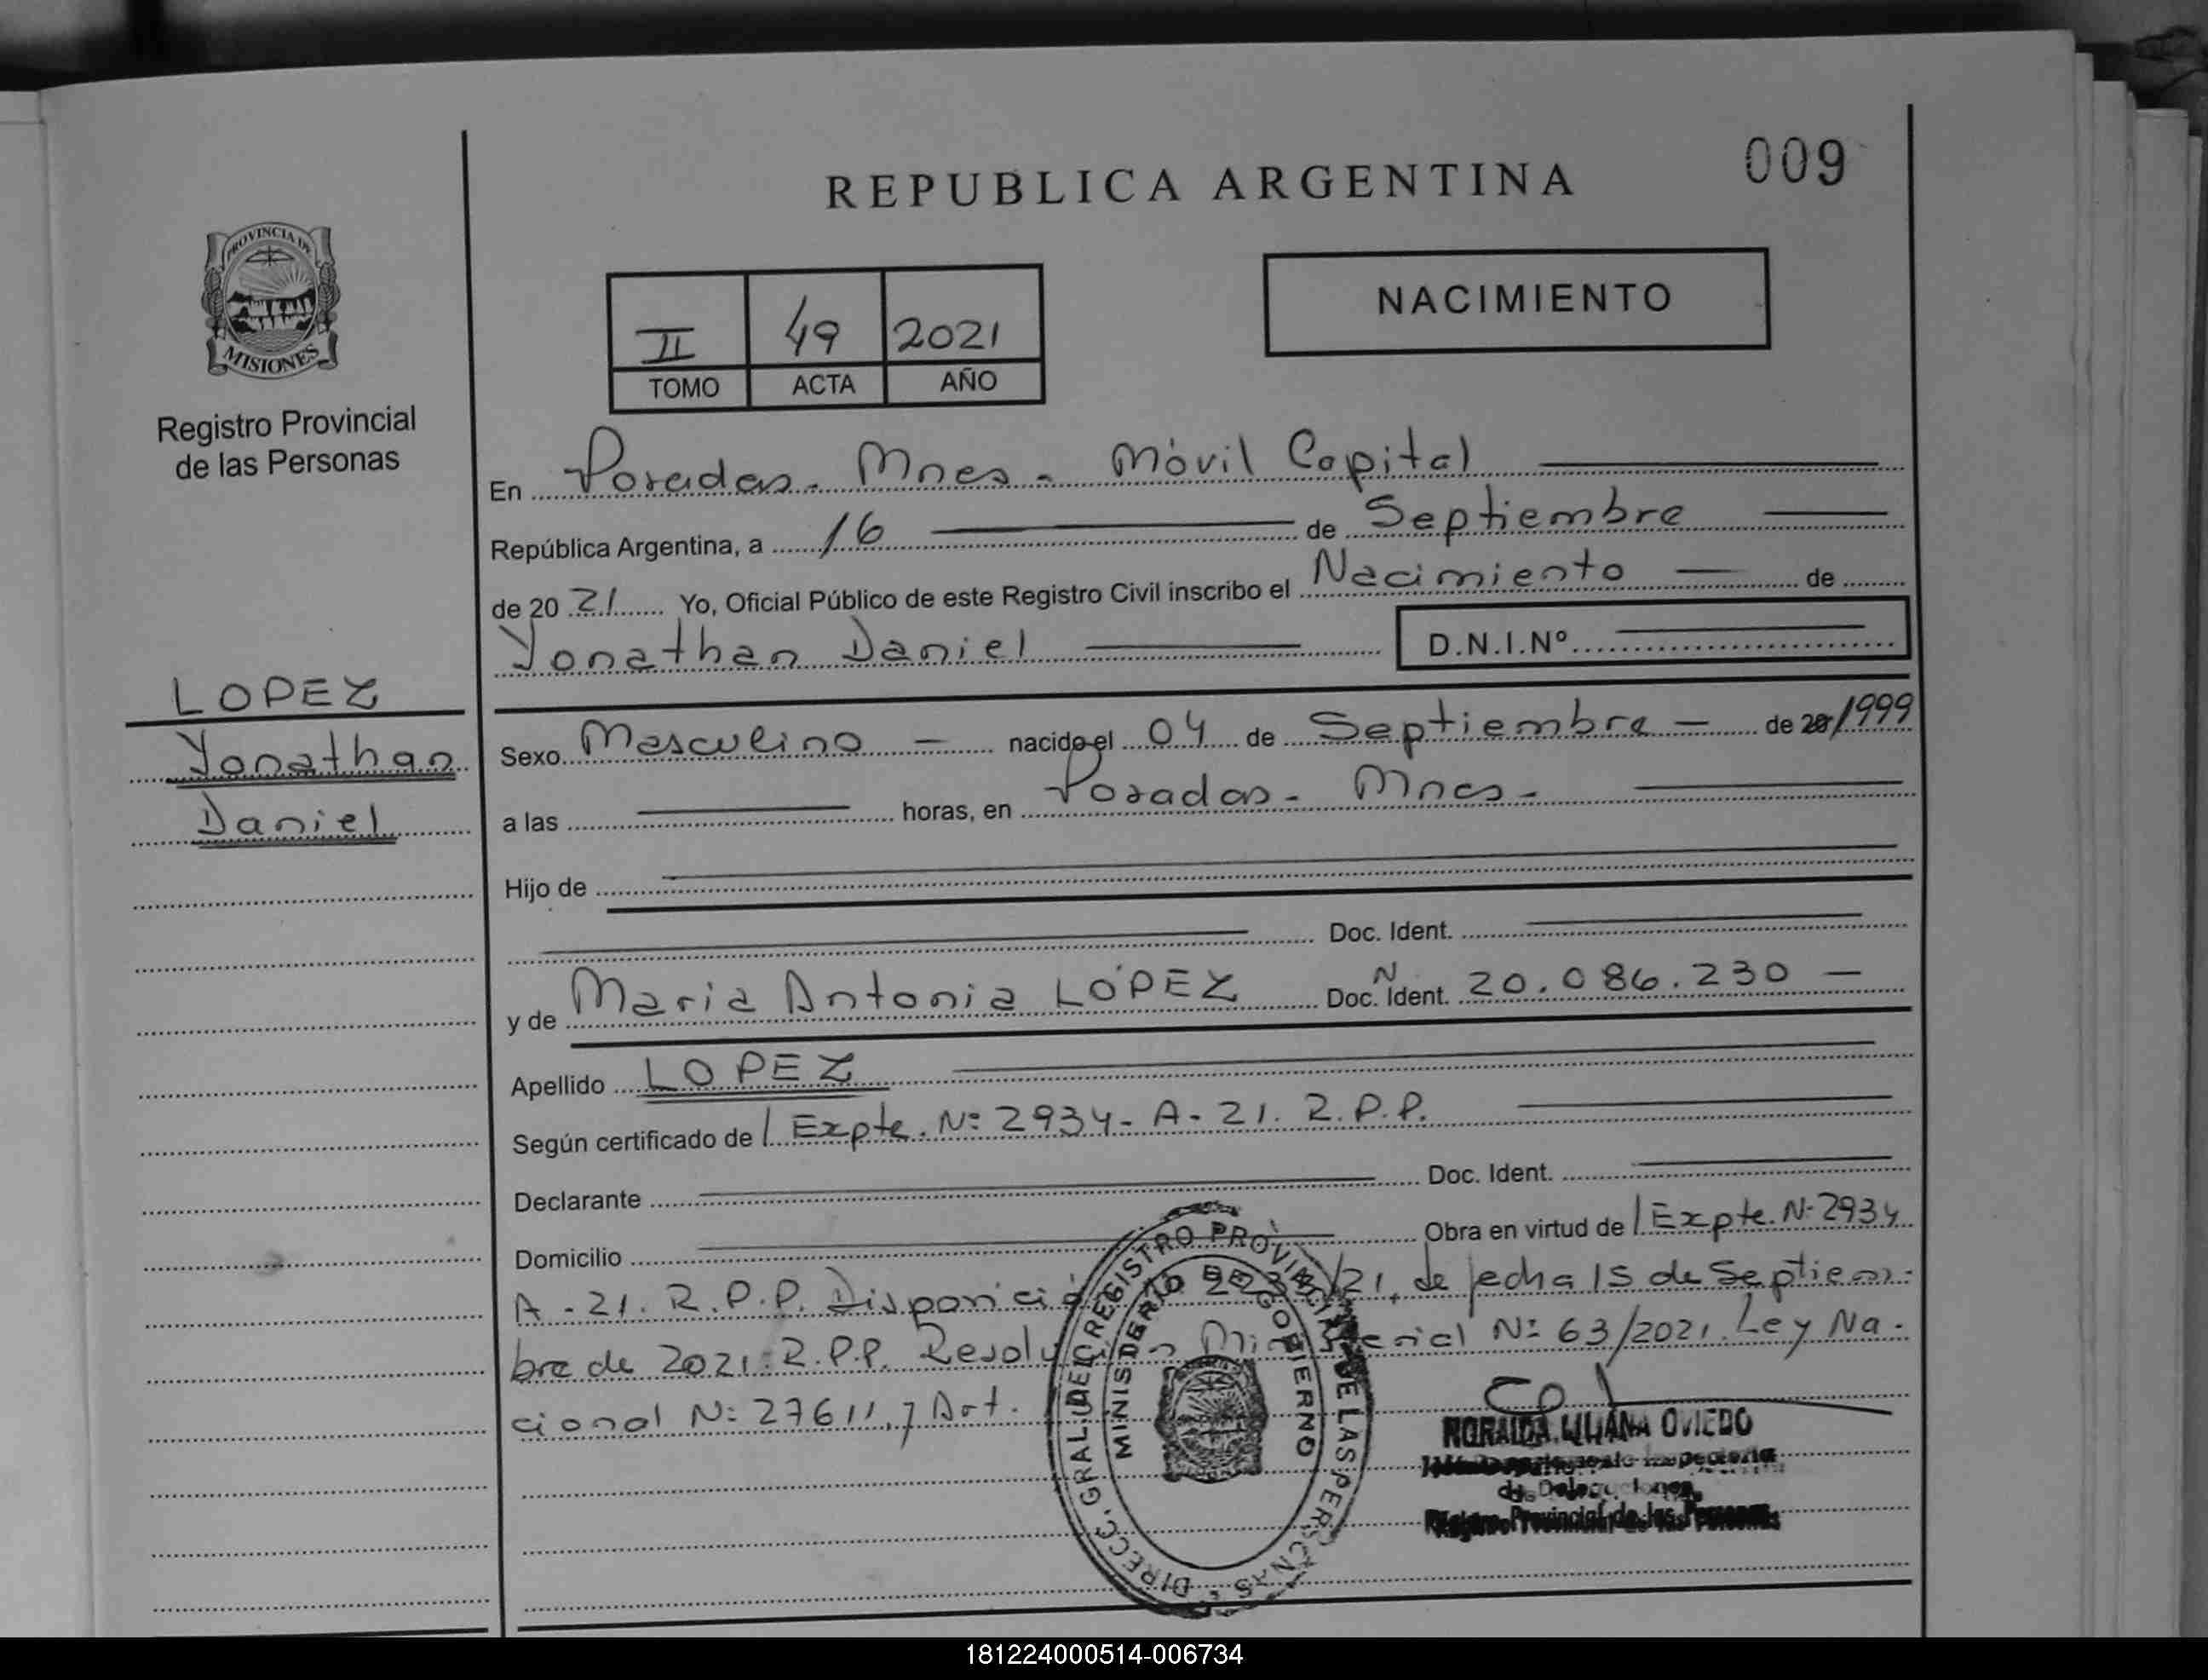 REPUBLICA ARGENTINA
009
PROVINCIA DE
MISIONES
Registro Provincial
de las Personas
II 49 2021
TOMO ACTA AÑO
NACIMIENTO
En Posadas - Mnes - Móvil Capital
República Argentina, a 16 de Septiembre
de 20 21 Yo, Oficial Público de este Registro Civil inscribo el Nacimiento de
Yonathan Daniel D.N.I.Nº
LOPEZ
Yonathan
Daniel
Sexo Masculino nacido el 04 de Septiembre de 20/1999
a las horas, en Posadas - Mnes -
Hijo de
Doc. Ident.
y de Maria Antonia LÓPEZ Doc. Ident. N 20.086.230
Apellido LOPEZ
Según certificado de / Expte. Nº 2934 - A - 21. R.P.P.
Declarante Doc. Ident.
Domicilio Obra en virtud de / Expte. Nº 2934
A - 21. R.P.P. /21, de fecha 15 de Septiem-
bre de 2021. R.P.P. Resolución Ministerial Nº 63/2021. Ley Na-
cional Nº 27611, 7 Art.
DIRECC. GRAL. DEL REGISTRO PROVINCIAL DE LAS PERSONAS
MINISTERIO DE GOBIERNO
NORAIDA LILIANA OVIEDO
de Delegaciones
Registro Provincial de las Personas
181224000514-006734